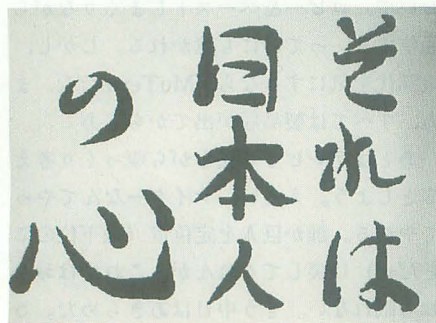 それは
日本人
の心